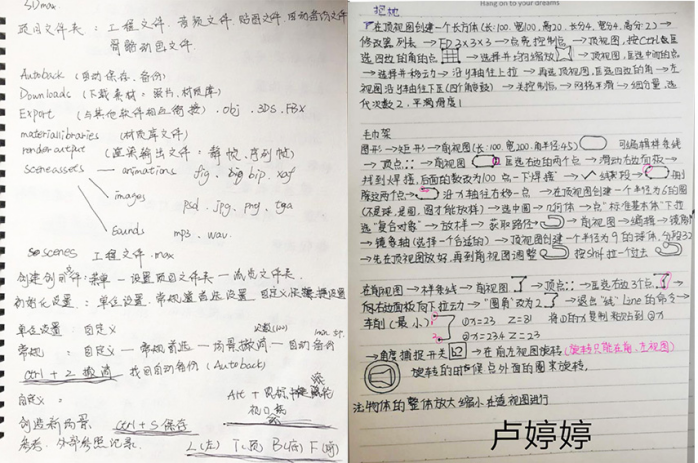 3Dmax
项目文件夹：工程文件.音频文件.贴图文件.自动备份文件
骨骼动画文件
Autoback (自动保存.备份)
Downloads (下载素材：照片.材质库)
Export (与其他软件相互衔接) .obj .3DS .FBX
materiallibraries (材质库文件)
renderoutput (渲染输出文件：静帧.序列帧)
sceneassets — animations fig. bip .xaf
images
psd .jpg .png .tga
sounds mp3. wav.
scenes 工程文件.max
创建项目文件夹：菜单—设置项目文件夹—
初始化设置：单位设置.常规首选设置.自定义快捷键设置
单位设置：自定义
常规：自定义—常规首选—场景撤销—自动备份
ctrl + Z 撤销 找回自动备份 (Autoback)
自定义：
Alt +
创造新场景 ctrl + S 保存
参考.外部参照记录.
L(左) T(顶) B(底) F(前)
Hang on to your dreams
抱枕
在顶视图创建一个长方体(长:100.宽100,高20.长分4,宽分4,高分:2)→
修改器列表→FFD 3×3×3→点亮控制点→顶视图,按Ctrl键区
选四边的角的点→选择并均匀缩放→顶视图,区选中间的点
→选择并移动→沿y轴往上拉→再选顶视图,区选四边的角→左
视图沿y轴往下压(四个角重叠)→关控制点→网格平滑→细分量,迭
代次数2,平滑度1
毛巾架
图形→矩形→前视图(长:100.宽200.角半径:45) 可编辑样条线
→顶点→前视图 区选右边的两个点→滑动右边面板→
找到焊接,后面的数改为100点一下焊接→线段→
除这两个点→沿x轴往右移一点→在顶视图创建一个半径为6的圆
(不是球,是圆,圆才能放样)→选中圆→几何体→点"标准基本体"下拉
选"复合对象"→放样→获取路径→前视图→编辑→镜像
→镜像轴(选择一个合适的)→顶视图创建一个半径为9的球体,分段32
→先在顶视图放好,再到前视图调整 按shift拉一个过去
在前视图→样条线→前视图→顶点→区选右边3个点→
向右边面板向下拉动→"圆角"改为2→退出"线"Line的命令→
车削(最小) ①x=23 Z=31 将①的x复制粘贴到②x
②x=23 Z=23
→角度捕捉开关→在前左视图旋转(旋转只能在前.左视图)
旋转的时候点外面的圈来旋转,
注:物体的整体放大缩小在透视图进行
卢婷婷